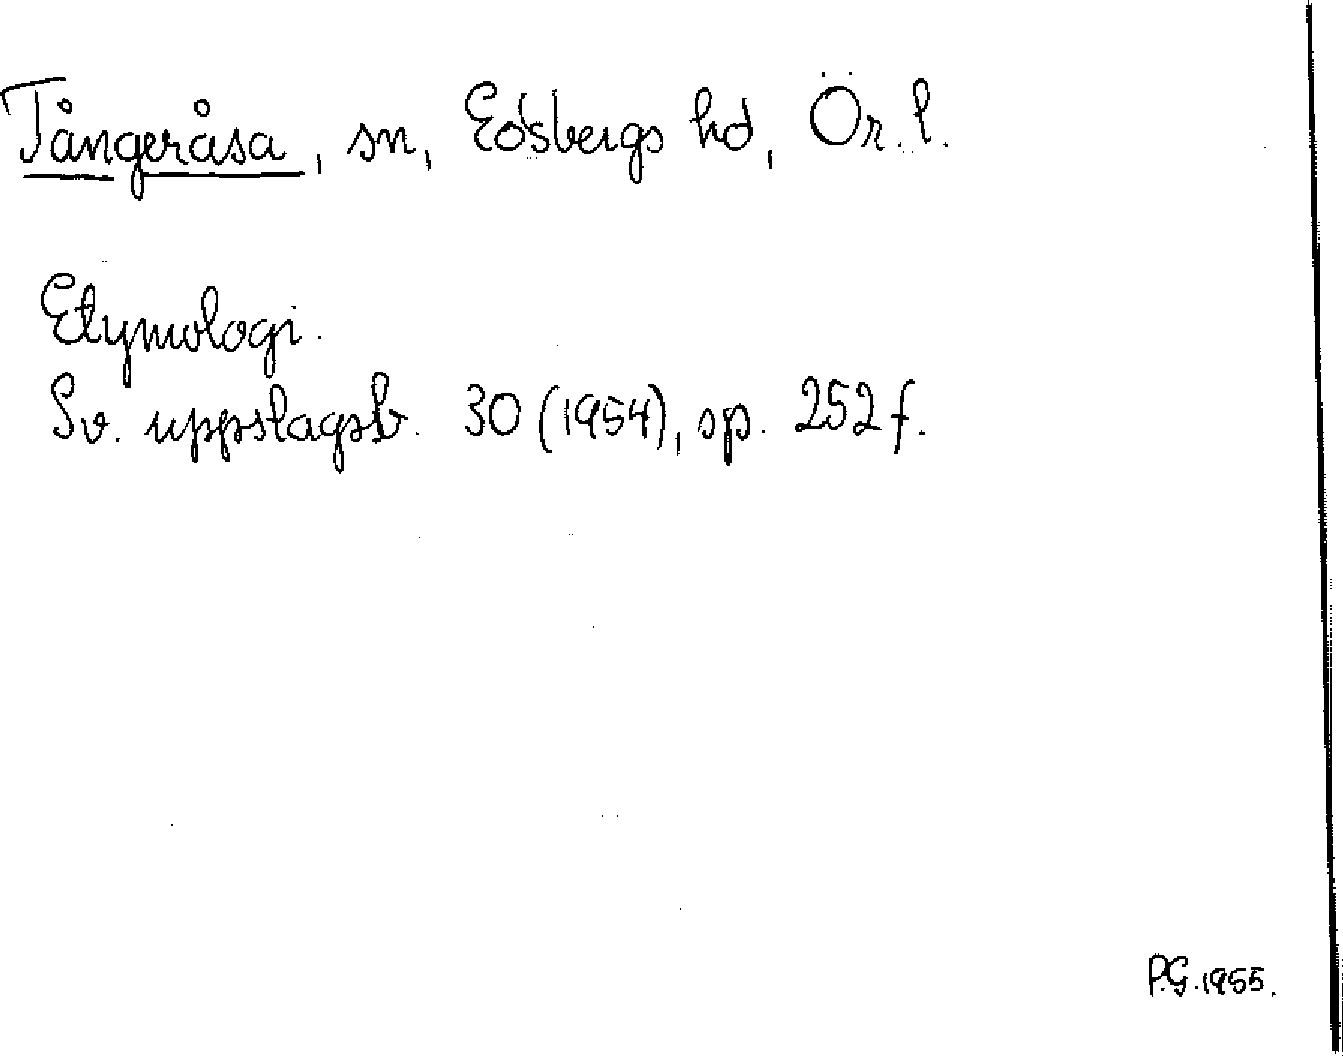 Tångeråsa, sn, Edsbergs hd, Ör. l.
Etymologi.
Sv. uppslagsb. 30 (1954), sp. 252 f.
P.G. 1955.